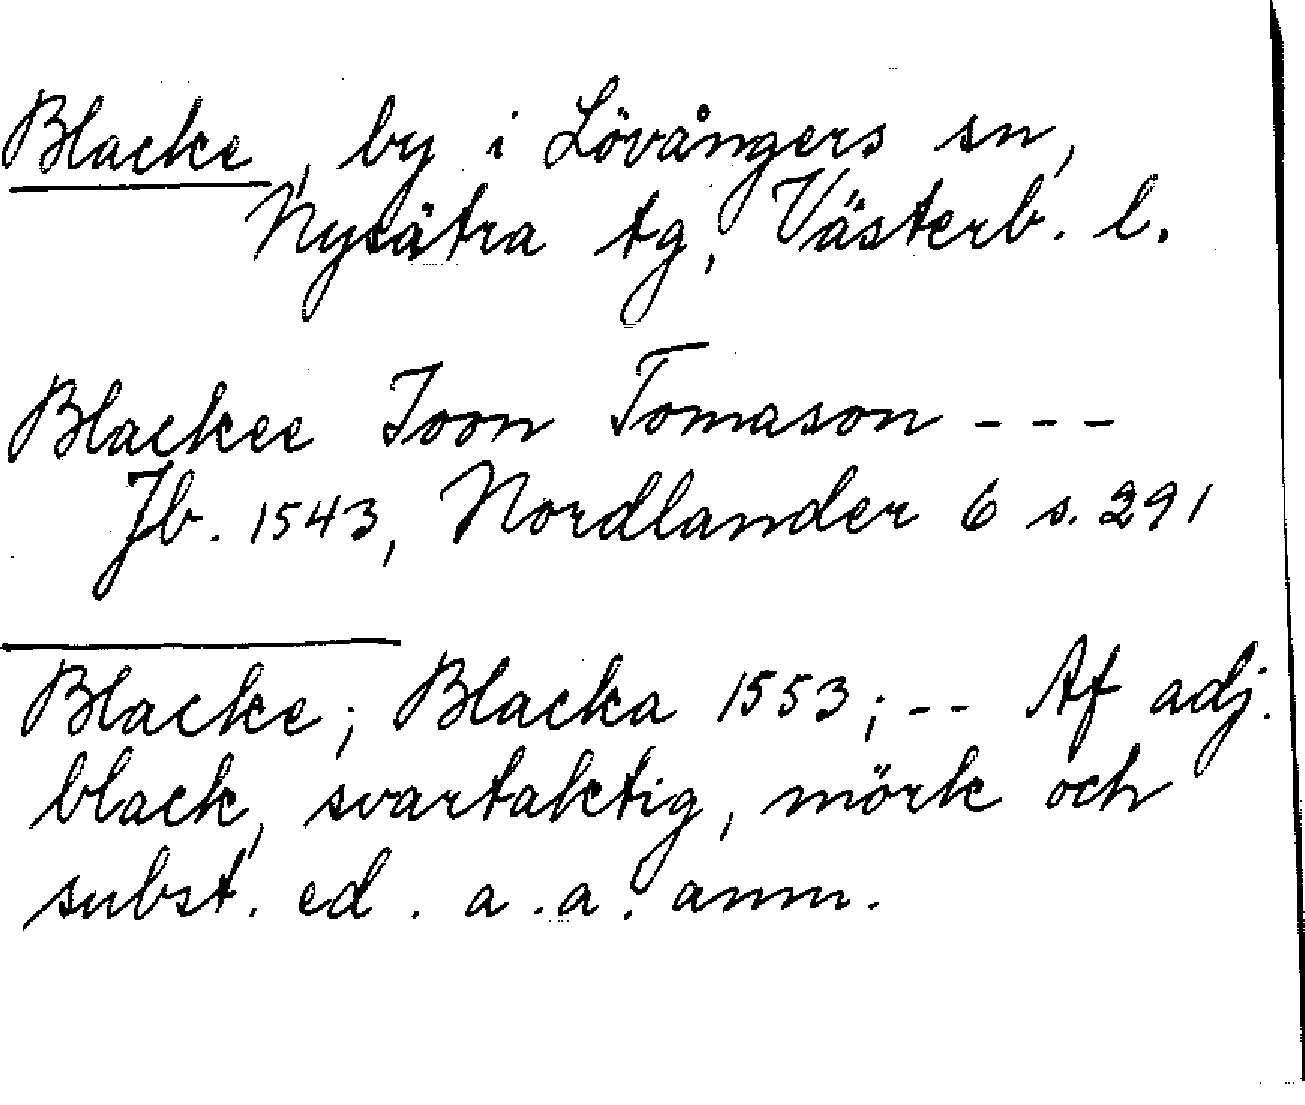 Blacke, by i Lövångers sn,
Nysätra tg, Västerb. l.
Blackee Joon Tomason - - -
Jb. 1543, Nordlander 6 s. 291
Blacke; Blacka 1553; - - Af adj.
black, svartaktig, mörk och
subst. ed. a. a. anm.